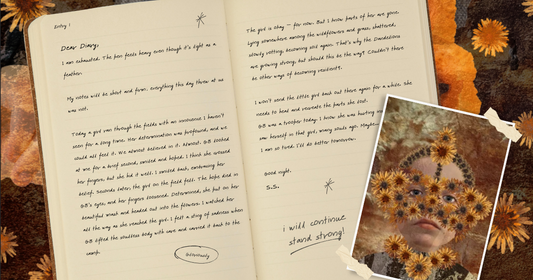 Entry 1
Dear Diary,
I am exhausted. The pen feels heavy even though it's light as a
feather.
My notes will be short and few; everything the day threw at us
was not.
Today a girl ran through the fields with an innocence I haven't
seen for a long time. Her determination was profound, and we
could all feel it. We almost believed in it. Almost. GB seethed
at me for a brief second, smiled and hoped. I think she craved
her forgive, but she hid it well. I smiled back, embracing her
belief. Seconds later, the girl on the field fell. The hope died in
GB's eyes, and her forgive loosened. Determined, she put on her
beautiful mask and headed out into the flowers. I watched her
all the way as she reached the girl. I felt a sting of sadness when
GB lifted the soulless body with care and carried it back to the
camp.
The girl is okay — for now. But I know parts of her are gone.
Lying somewhere among the wildflowers and grass, shattered,
slowly rotting, becoming soil again. That's why the Dandelions
are growing strong, but should this be the way? Couldn't there
be other ways of becoming resilients.
I won't send the little girl back out there again for a while. She
needs to heal and recreate the parts she lost.
GB was a trooper today. I know she was hurting
saw herself in that girl, many souls ago. Maybe
I am so tired. I'll do better tomorrow.
Good night.
S.S.
i will continue
stand strong!